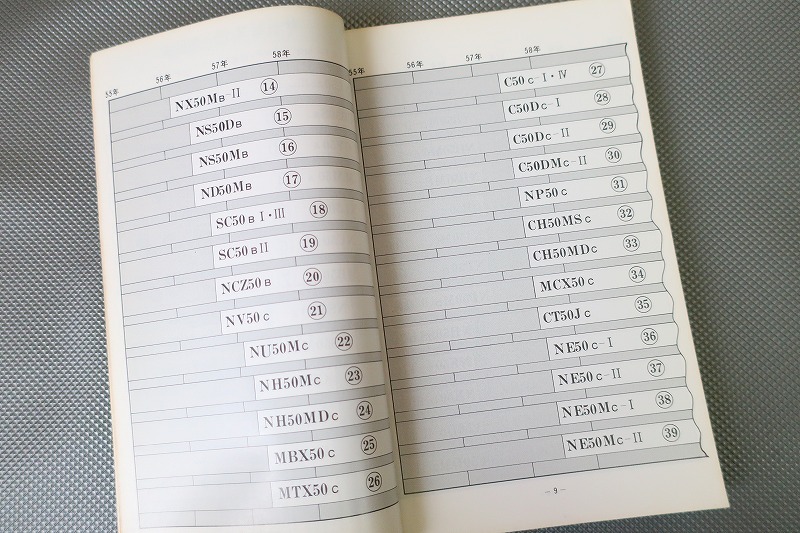 55年 56年 57年 58年
NX50MB-II ⑭
NS50DB ⑮
NS50MB ⑯
ND50MB ⑰
SC50B I・III ⑱
SC50BII ⑲
NCZ50B ⑳
NV50C ㉑
NU50MC ㉒
NH50MC ㉓
NH50MDC ㉔
MBX50C ㉕
MTX50C ㉖
55年 56年 57年 58年
C50C-I・IV ㉗
C50DC-I ㉘
C50DC-II ㉙
C50DMC-II ㉚
NP50C ㉛
CH50MSC ㉜
CH50MDC ㉝
MCX50C ㉞
CT50JC ㉟
NE50C-I ㊱
NE50C-II ㊲
NE50MC-I ㊳
NE50MC-II ㊴
－9－